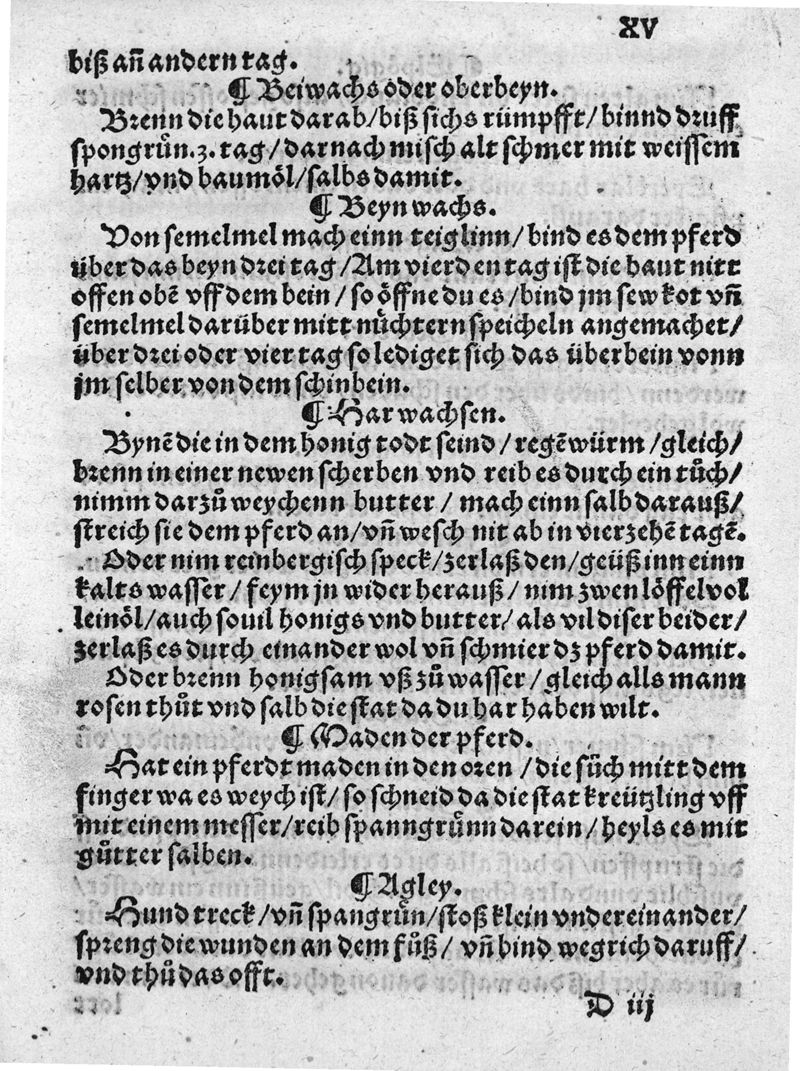 XV
biß an̄ andern tag.
¶ Beiwachs oder oberbeyn.
Brenn die haut darab/biß sichs rümpfft/binnd druff
spongrün.3.tag/darnach misch alt schmer mit weissem
hartz/vnd baumöl/salbs damit.
¶ Beyn wachs.
Von semelmel mach einn teiglinn/bind es dem pferd
über das beyn drei tag/Am vierden tag ist die haut nitt
offen obē vff dem bein/so öffne du es/bind jm sew kot vn̄
semelmel darüber mitt nüchtern speicheln angemachet/
über drei oder vier tag so lediget sich das überbein vonn
jm selber von dem schinbein.
¶ Har wachsen.
Bynē die in dem honig todt seind/regēwürm/gleich/
brenn in einer newen scherben vnd reib es durch ein tuͦch/
nimm darzuͦ weychenn butter/mach einn salb darauß/
streich sie dem pferd an/vn̄ wesch nit ab in vierzehē tagē.
Oder nim reinbergisch speck/zerlaß den/geüß inn einn
kalts wasser/feym jn wider herauß/nim zwen löffel vol
leinöl/auch souil honigs vnd butter/als vil diser beider/
zerlaß es durch einander wol vn̄ schmier dz pferd damit.
Oder brenn honigsam vß zuͦ wasser/gleich alls mann
rosen thuͦt vnd salb die stat da du har haben wilt.
¶ Maden der pferd.
Hat ein pferdt maden in den oren/die suͦch mitt dem
finger wa es weych ist/so schneid da die stat kreützling vff
mit einem messer/reib spanngruͤnn darein/heyls es mit
guͦtter salben.
¶ Agley.
Hund treck/vn̄ spangruͤn/stoß klein vndereinander/
spreng die wunden an dem fuͦß/vn̄ bind wegrich daruff/
vnd thuͦ das offt.
D iij